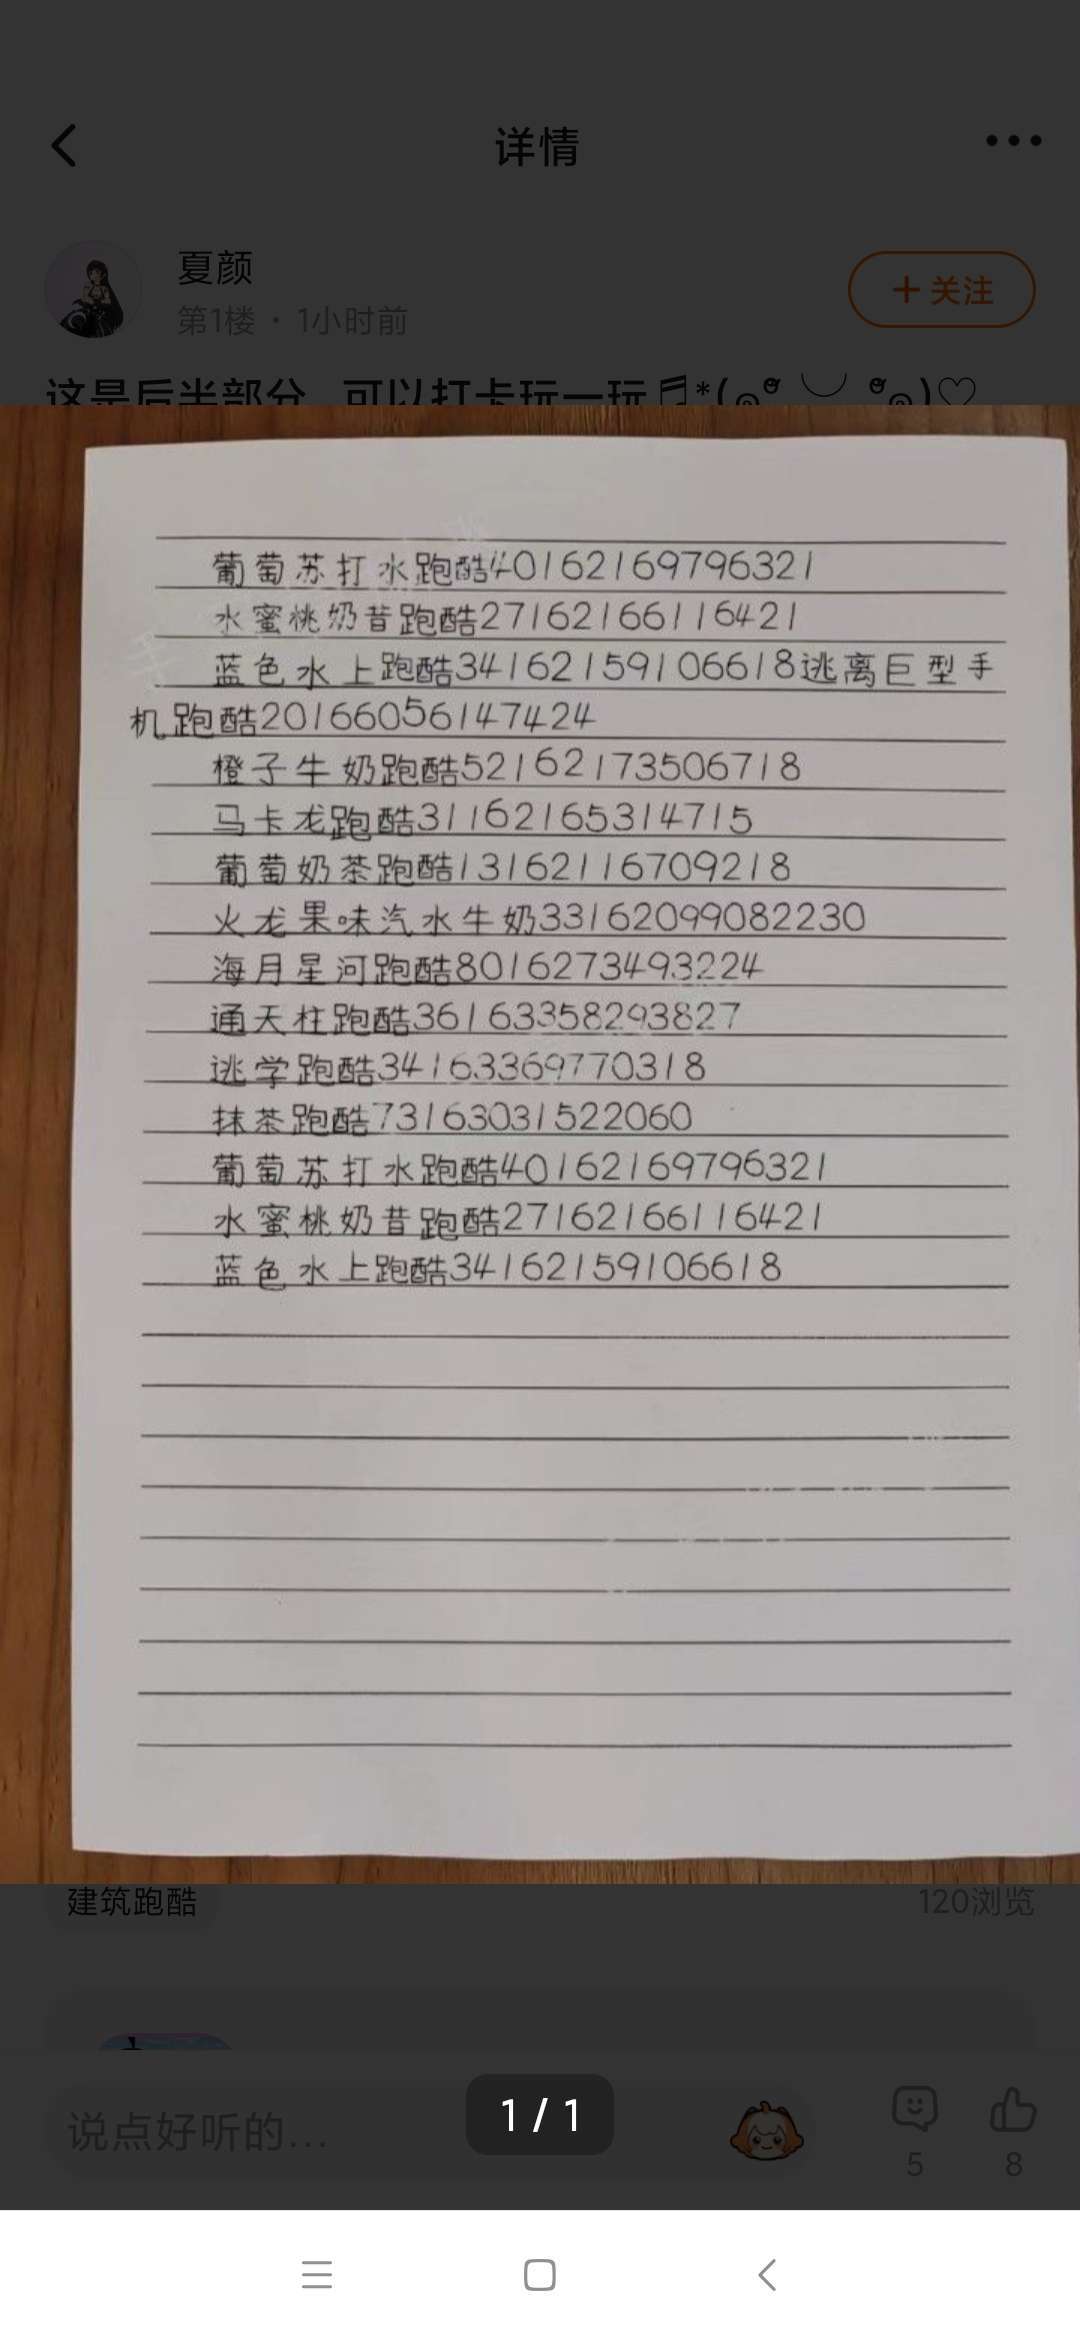 详情
夏颜
第1楼 · 1小时前
+关注
这是后半部分 可以打卡玩一玩
葡萄苏打水跑酷40162169796321
水蜜桃奶昔跑酷27162166116421
蓝色水上跑酷34162159106618逃离巨型手
机跑酷20166056147424
橙子牛奶跑酷52162173506718
马卡龙跑酷31162165314715
葡萄奶茶跑酷13162116709218
火龙果味汽水牛奶33162099082230
海月星河跑酷8016273493224
通天柱跑酷36163358293827
逃学跑酷34163369770318
抹茶跑酷73163031522060
葡萄苏打水跑酷40162169796321
水蜜桃奶昔跑酷27162166116421
蓝色水上跑酷34162159106618
建筑跑酷
120浏览
说点好听的...
1 / 1
5
8